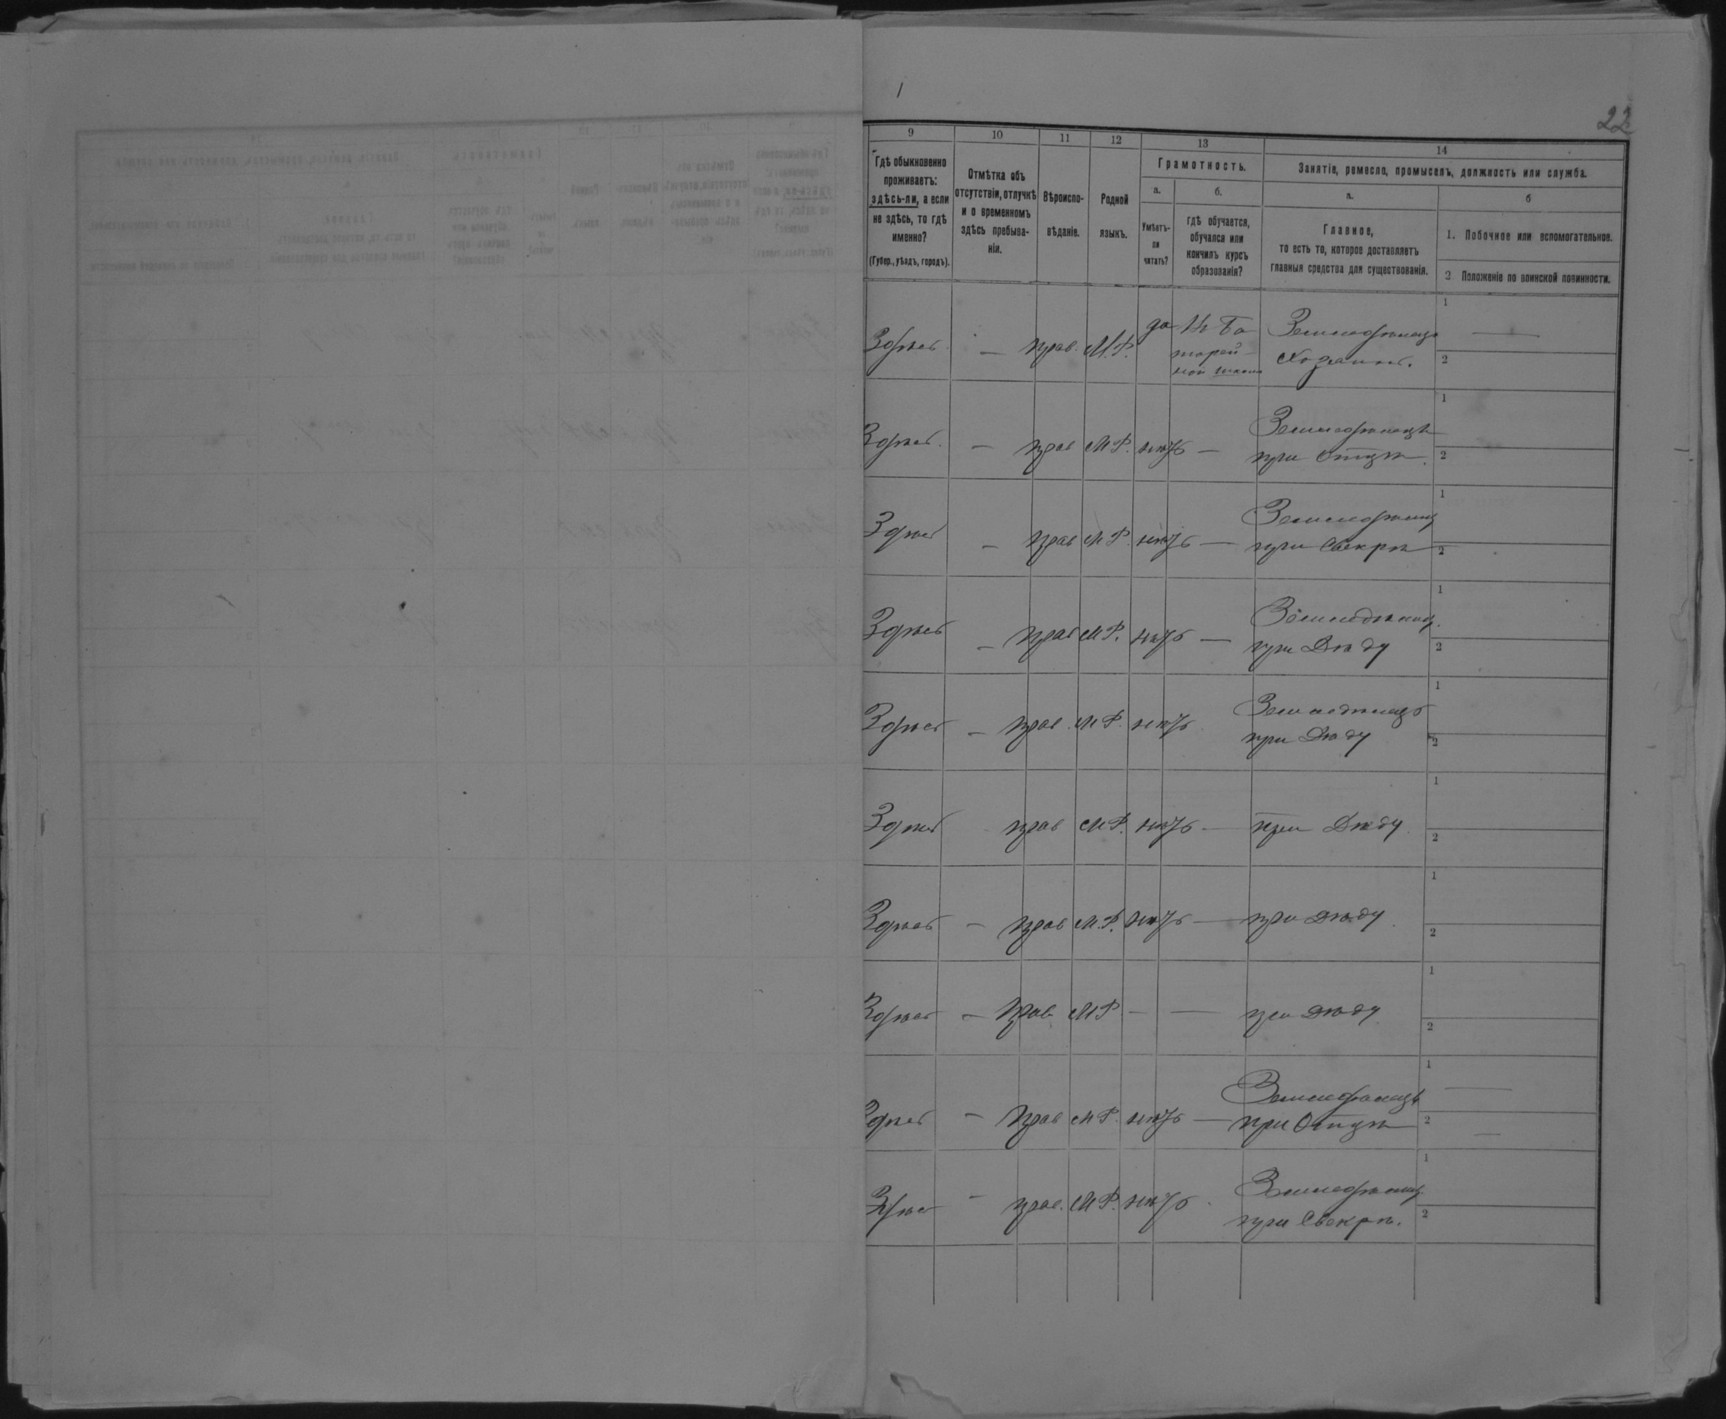 1
22
9 10 11 12 13 14
Гдѣ обыкновенно
проживаетъ:
здѣсь-ли, а если
не здѣсь, то гдѣ
именно?
(Губер., уѣздъ, городъ).
Отмѣтка объ
отсутствіи, отлучкѣ
и о временномъ
здѣсь пребыва-
ніи.
Вѣроиспо-
вѣданіе.
Родной
языкъ.
Грамотность.
а.
Умѣетъ-
ли
читать?
б.
гдѣ обучается,
обучался или
кончилъ курсъ
образованія?
Занятіе, ремесло, промыселъ, должность или служба.
а.
Главное,
то есть то, которое доставляетъ
главныя средства для существованія.
б
1. Побочное или вспомогательное.
2 Положеніе по воинской повинности.
Здѣсь — прав. М.Р. да Въ Ба Земледѣлецъ 1 —
тарей хозяинъ. 2
ной школѣ
Здѣсь — прав М.Р. нѣтъ — Земледѣлецъ 1
при Отцѣ 2
Здѣсь — прав М.Р. нѣтъ — Земледѣлец 1
при Свекрѣ 2
Здѣсь — прав М.Р. нѣтъ — Земледѣлец 1
при Дѣду 2
Здѣсь — прав. М.Р. нѣтъ Земледѣлецъ 1
при Дѣду 2
Здѣсь прав М.Р. нѣтъ — при Дѣду 1
2
Здѣсь — прав М.Р. нѣтъ — при Дѣду 1
2
Здѣсь — прав М.Р — — при Дѣду 1
2
Здѣсь — прав М.Р. нѣтъ — Земледѣлецъ 1 —
при Отцѣ 2 —
Здѣс — прав. М.Р. нѣтъ Земледѣлец 1
при Свекрѣ. 2